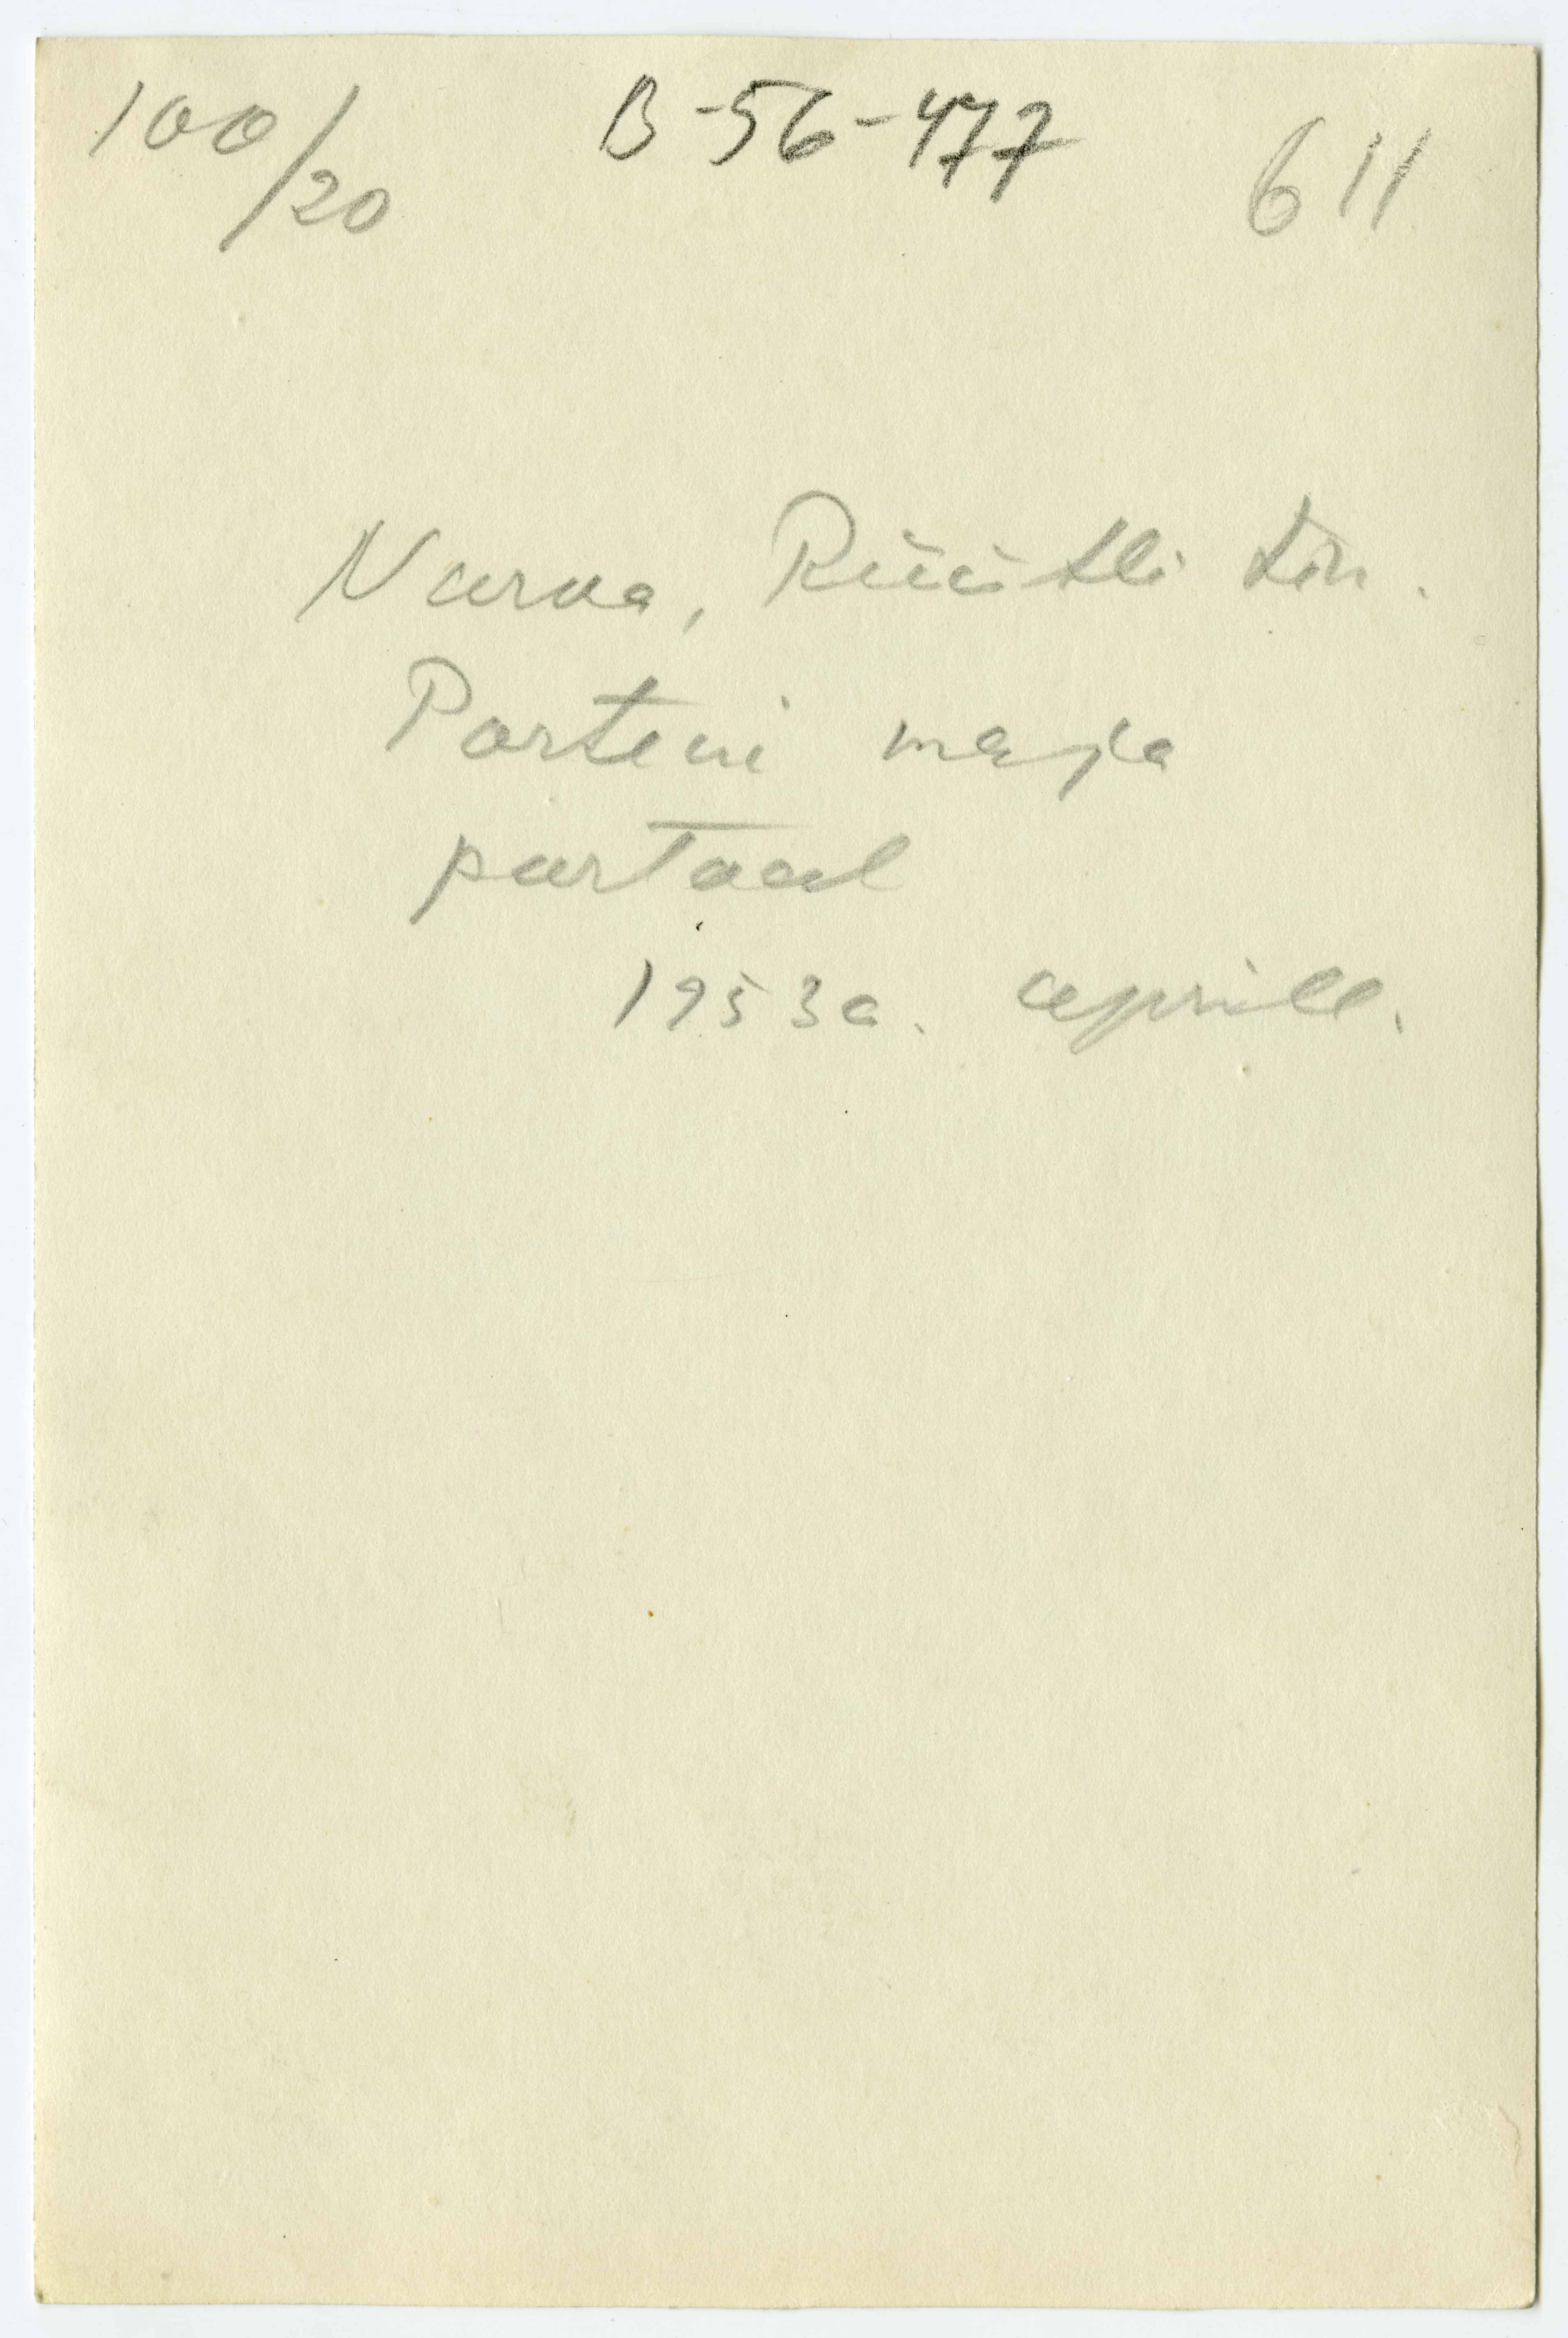 100/20 B-56-477 611
Narva, Rüütli tän.
Porteni maja
portaal
1953 a. aprill.